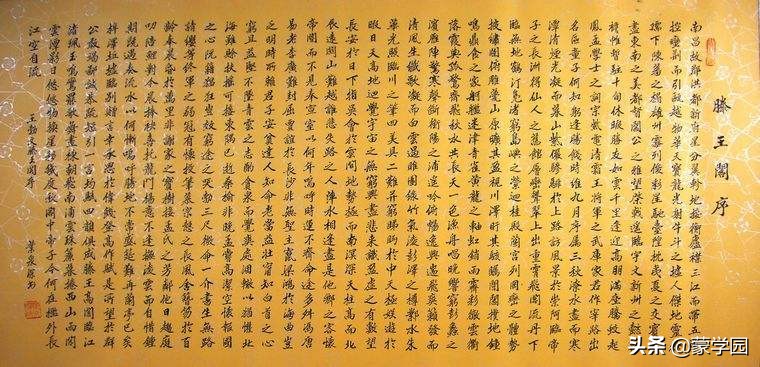 滕王閣序
南昌故郡洪都新府星分翼軫地接衡廬襟三江而帶五湖
控蠻荊而引甌越物華天寶龍光射牛斗之墟人傑地靈徐
孺下陳蕃之榻雄州霧列俊彩星馳臺隍枕夷夏之交賓主
盡東南之美都督閻公之雅望棨戟遙臨宇文新州之懿範
襜帷暫駐十旬休暇勝友如雲千里逢迎高朋滿座騰蛟起
鳳孟學士之詞宗紫電清霜王將軍之武庫家君作宰路出
名區童子何知躬逢勝餞時維九月序屬三秋潦水盡而寒
潭清煙光凝而暮山紫儼驂騑於上路訪風景於崇阿臨帝
子之長洲得仙人之舊館層巒聳翠上出重霄飛閣流丹下
臨無地鶴汀鳧渚窮島嶼之縈迴桂殿蘭宮列岡巒之體勢
披繡闥俯雕甍山原曠其盈視川澤盱其駭矚閭閻撲地鐘
鳴鼎食之家舸艦迷津青雀黃龍之軸虹銷雨霽彩徹雲衢
落霞與孤鶩齊飛秋水共長天一色漁舟唱晚響窮彭蠡之
濱雁陣驚寒聲斷衡陽之浦遙吟俯暢逸興遄飛爽籟發而
清風生纖歌凝而白雲遏睢園綠竹氣凌彭澤之樽鄴水朱
華光照臨川之筆四美具二難并窮睇眄於中天極娛遊於
暇日天高地迥覺宇宙之無窮興盡悲來識盈虛之有數望
長安於日下指吳會於雲間地勢極而南溟深天柱高而北
辰遠關山難越誰悲失路之人萍水相逢盡是他鄉之客懷
帝閽而不見奉宣室以何年嗚呼時運不齊命途多舛馮唐
易老李廣難封屈賈誼於長沙非無聖主竄梁鴻於海曲豈
乏明時所賴君子安貧達人知命老當益壯寧知白首之心
窮且益堅不墜青雲之志酌貪泉而覺爽處涸轍以猶懽北
海雖賒扶搖可接東隅已逝桑榆非晚孟嘗高潔空懷報國
之心阮籍猖狂豈效窮途之哭勃三尺微命一介書生無路
請纓等終軍之弱冠有懷投筆慕宗愨之長風舍簪笏於百
齡奉晨昏於萬里非謝家之寶樹接孟氏之芳鄰他日趨庭
叨陪鯉對今晨捧袂喜托龍門楊意不逢撫凌雲而自惜鍾
期既遇奏流水以何慚嗚呼勝地不常盛筵難再蘭亭已矣
梓澤丘墟臨別贈言幸承恩於偉餞登高作賦是所望於群
公敢竭鄙誠恭疏短引一言均賦四韻俱成滕王高閣臨江
渚佩玉鳴鸞罷歌舞畫棟朝飛南浦雲珠簾暮捲西山雨閒
雲潭影日悠悠物換星移幾度秋閣中帝子今何在檻外長
江空自流
王勃滕王閣序
头条 @蒙学园